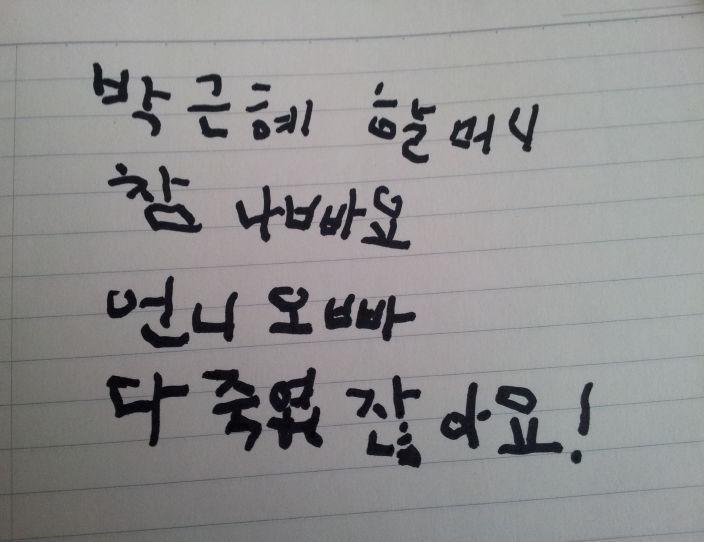 박근혜 할머니
참 나빠요
언니 오빠
다 죽였잖아요!